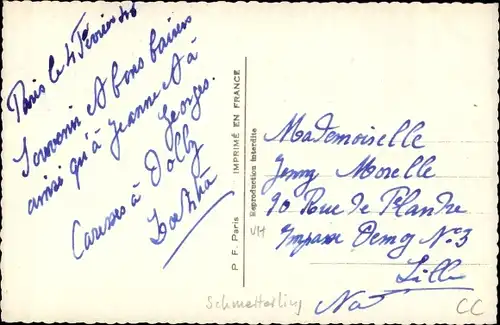 Paris le 4 Février 46
Souvenir et bons baisers
ainsi qu'à Jeanne et à
Georges.
Caresses à Dolly
P. F. Paris IMPRIMÉ EN FRANCE
Reproduction interdite
Mademoiselle
Jenny Morelle
90 Rue de Flandre
Impasse Demoy No 3
Lille
Nord
Schmetterling
CC